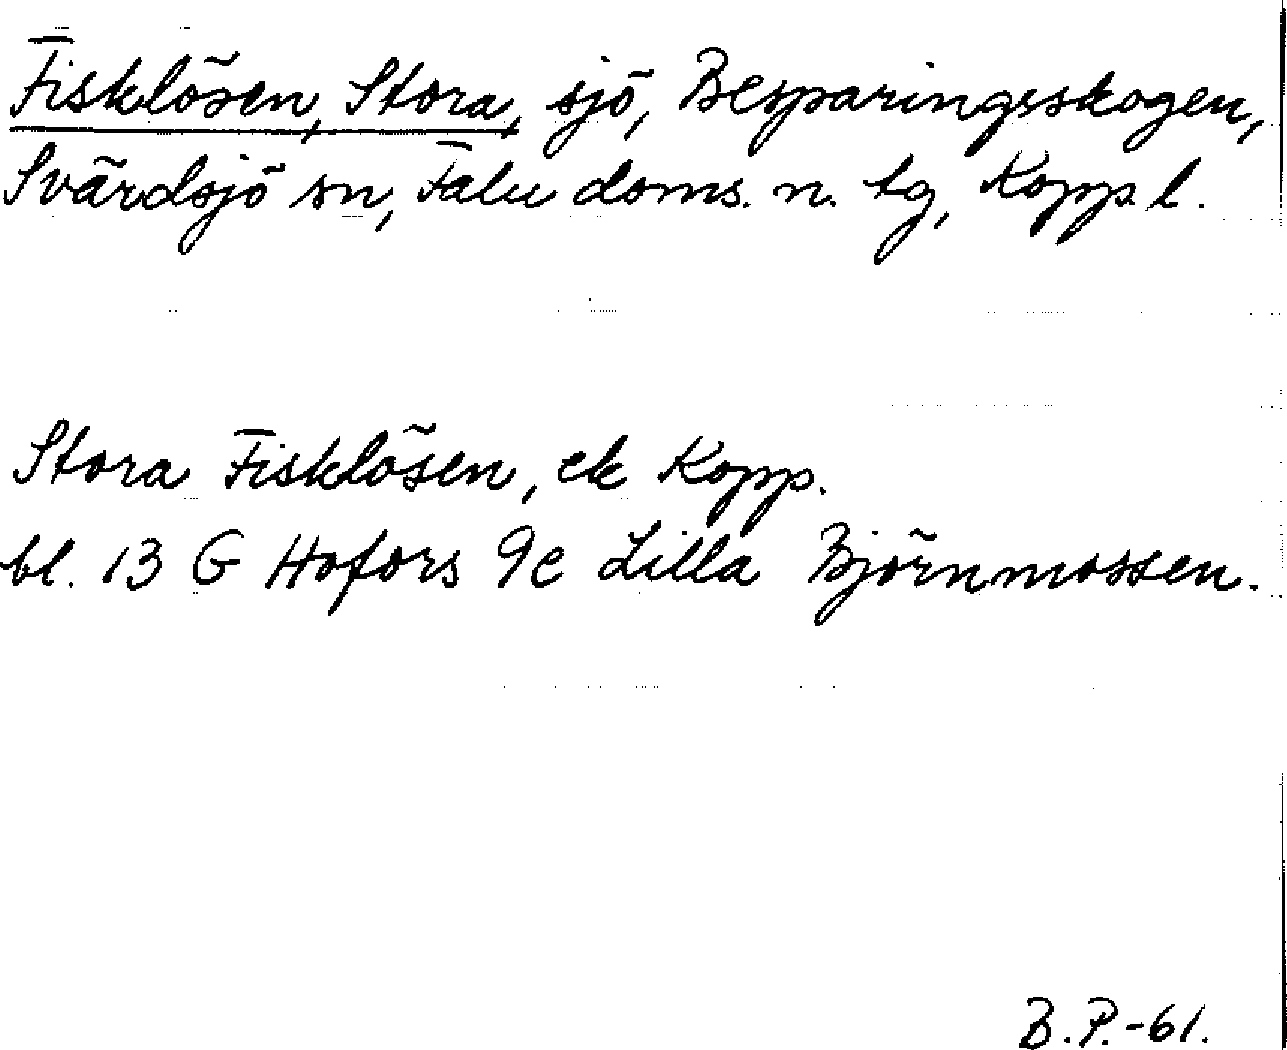 Fisklösen, Stora, sjö, Besparingsskogen,
Svärdsjö sn, Falu doms. n. tg, Kopp. l.
Stora Fisklösen, ek Kopp.
bl. 13 G Hofors 9c Lilla Björnmossen.
B.P.-61.